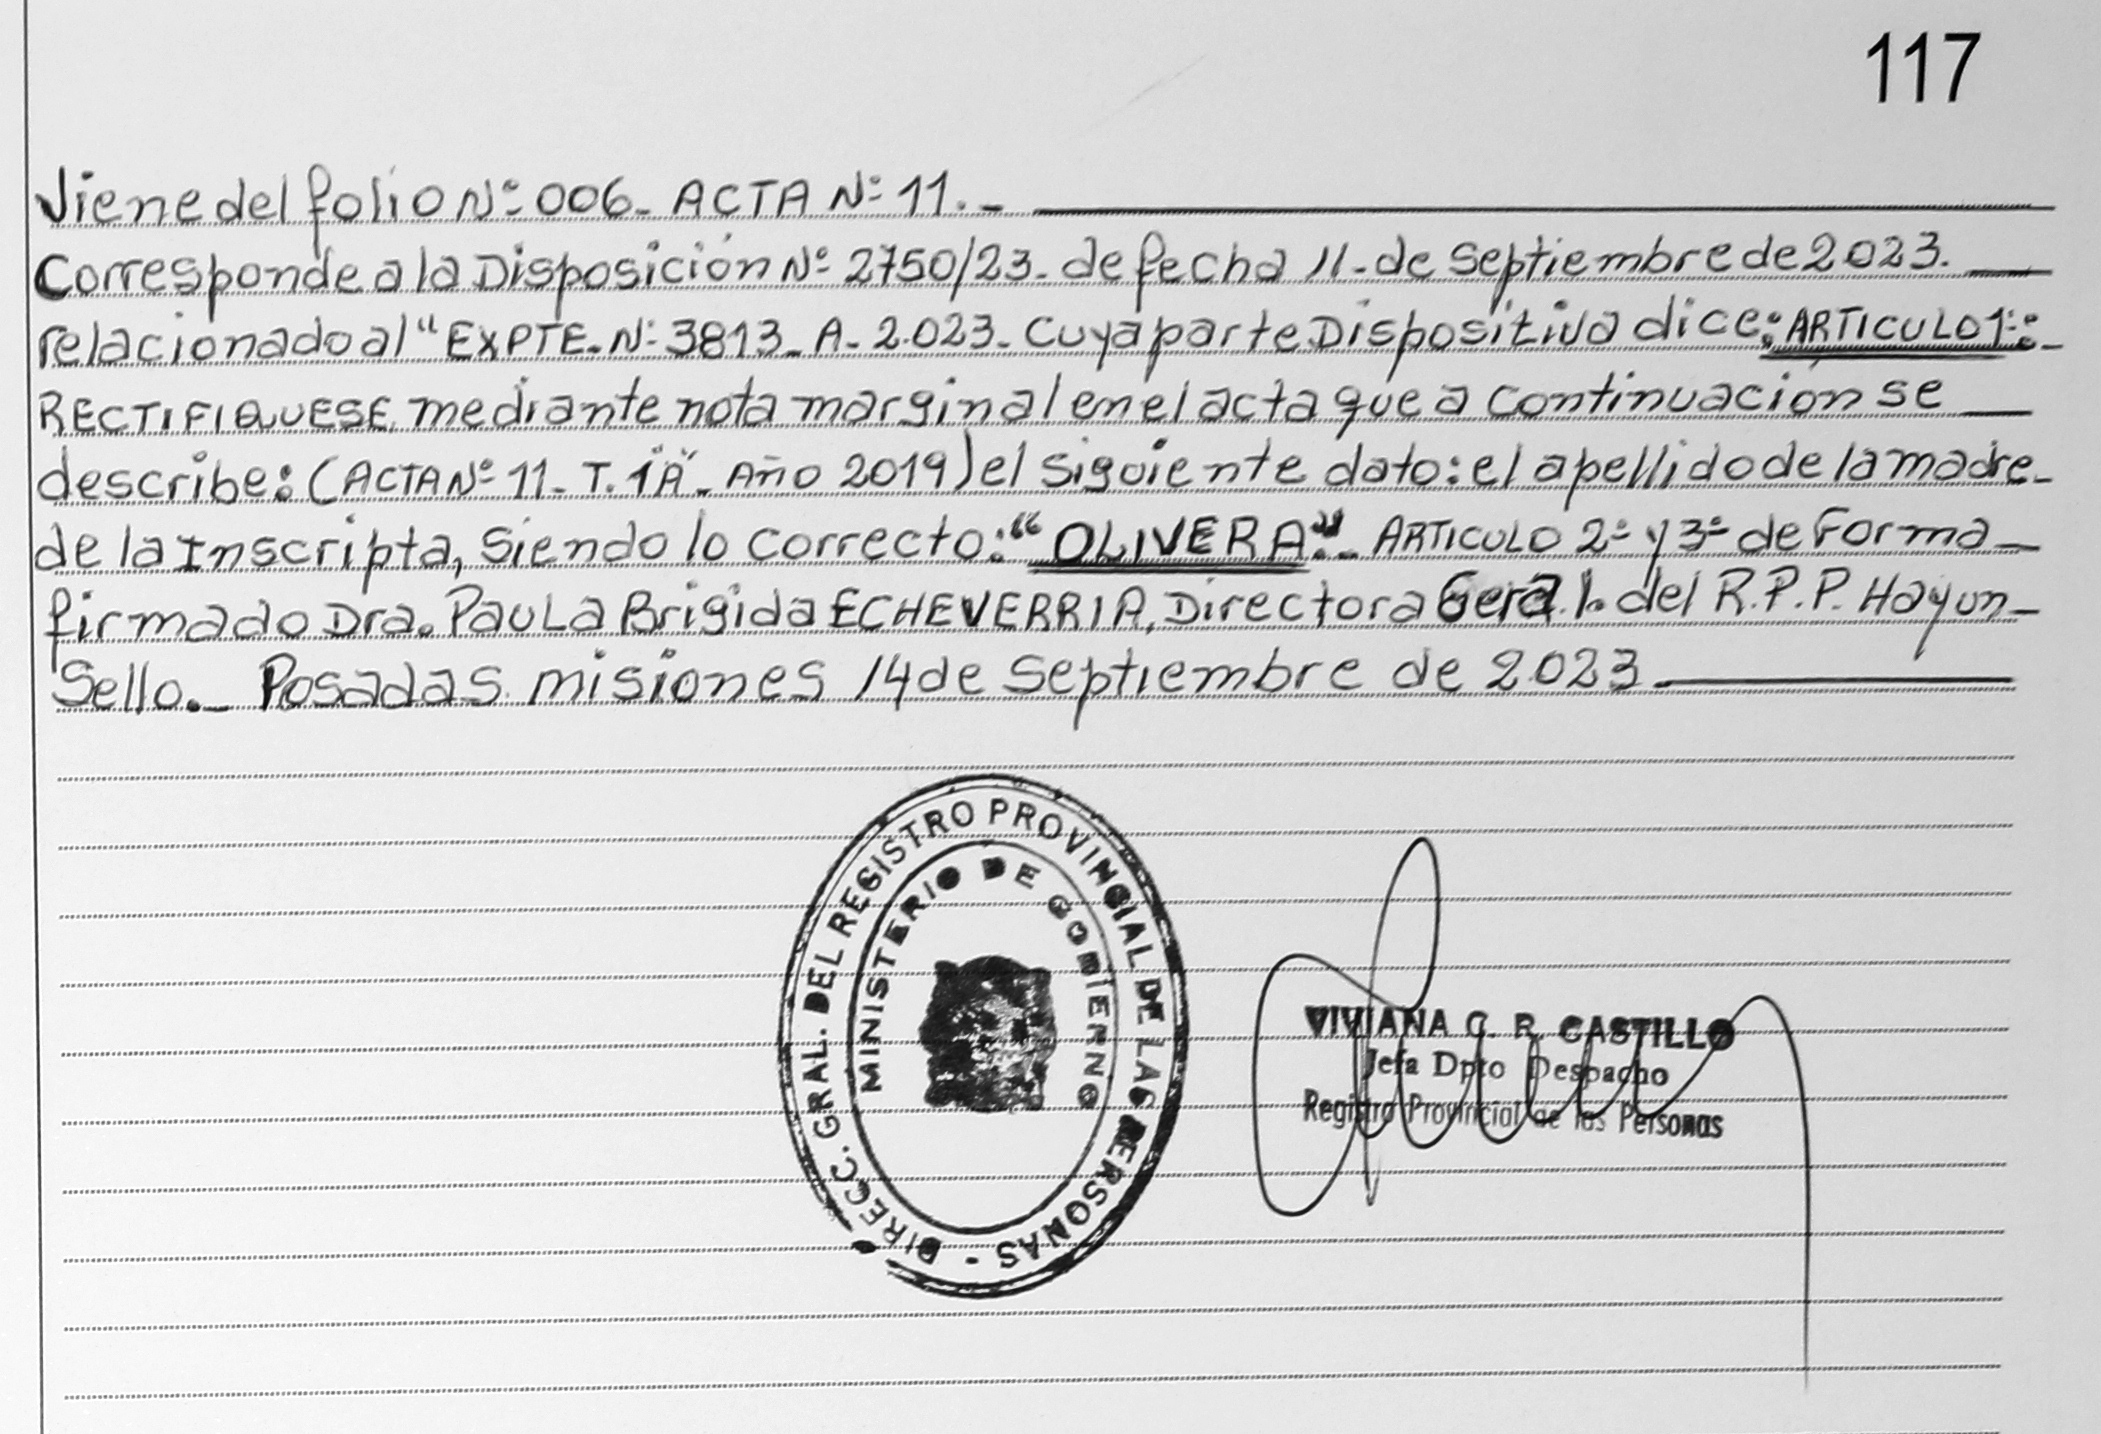 117
Viene del folio Nº 006- ACTA Nº 11.-
Corresponde a la Disposición Nº 2750/23- de fecha 11- de Septiembre de 2023.
relacionado al "EXPTE- Nº 3813- A- 2.023- Cuya parte Dispositiva dice: ARTICULO 1º:-
RECTIFIQUESE, mediante nota marginal en el acta que a continuación se
describe: (ACTA Nº 11- T. 1"A"- Año 2019) el siguiente dato: el apellido de la madre-
de la Inscripta, siendo lo correcto: "OLIVERA".- ARTICULO 2º y 3º de Forma-
firmado Dra. Paula Brigida ECHEVERRIA, Directora Geral. del R.P.P. Hay un-
Sello.- Posadas misiones 14 de Septiembre de 2023
DIRECC. GRAL. DEL REGISTRO PROVINCIAL DE LAS PERSONAS -
MINISTERIO DE GOBIERNO
VIVIANA C. R. CASTILLO
Jefa Dpto Despacho
Registro Provincial de las Personas